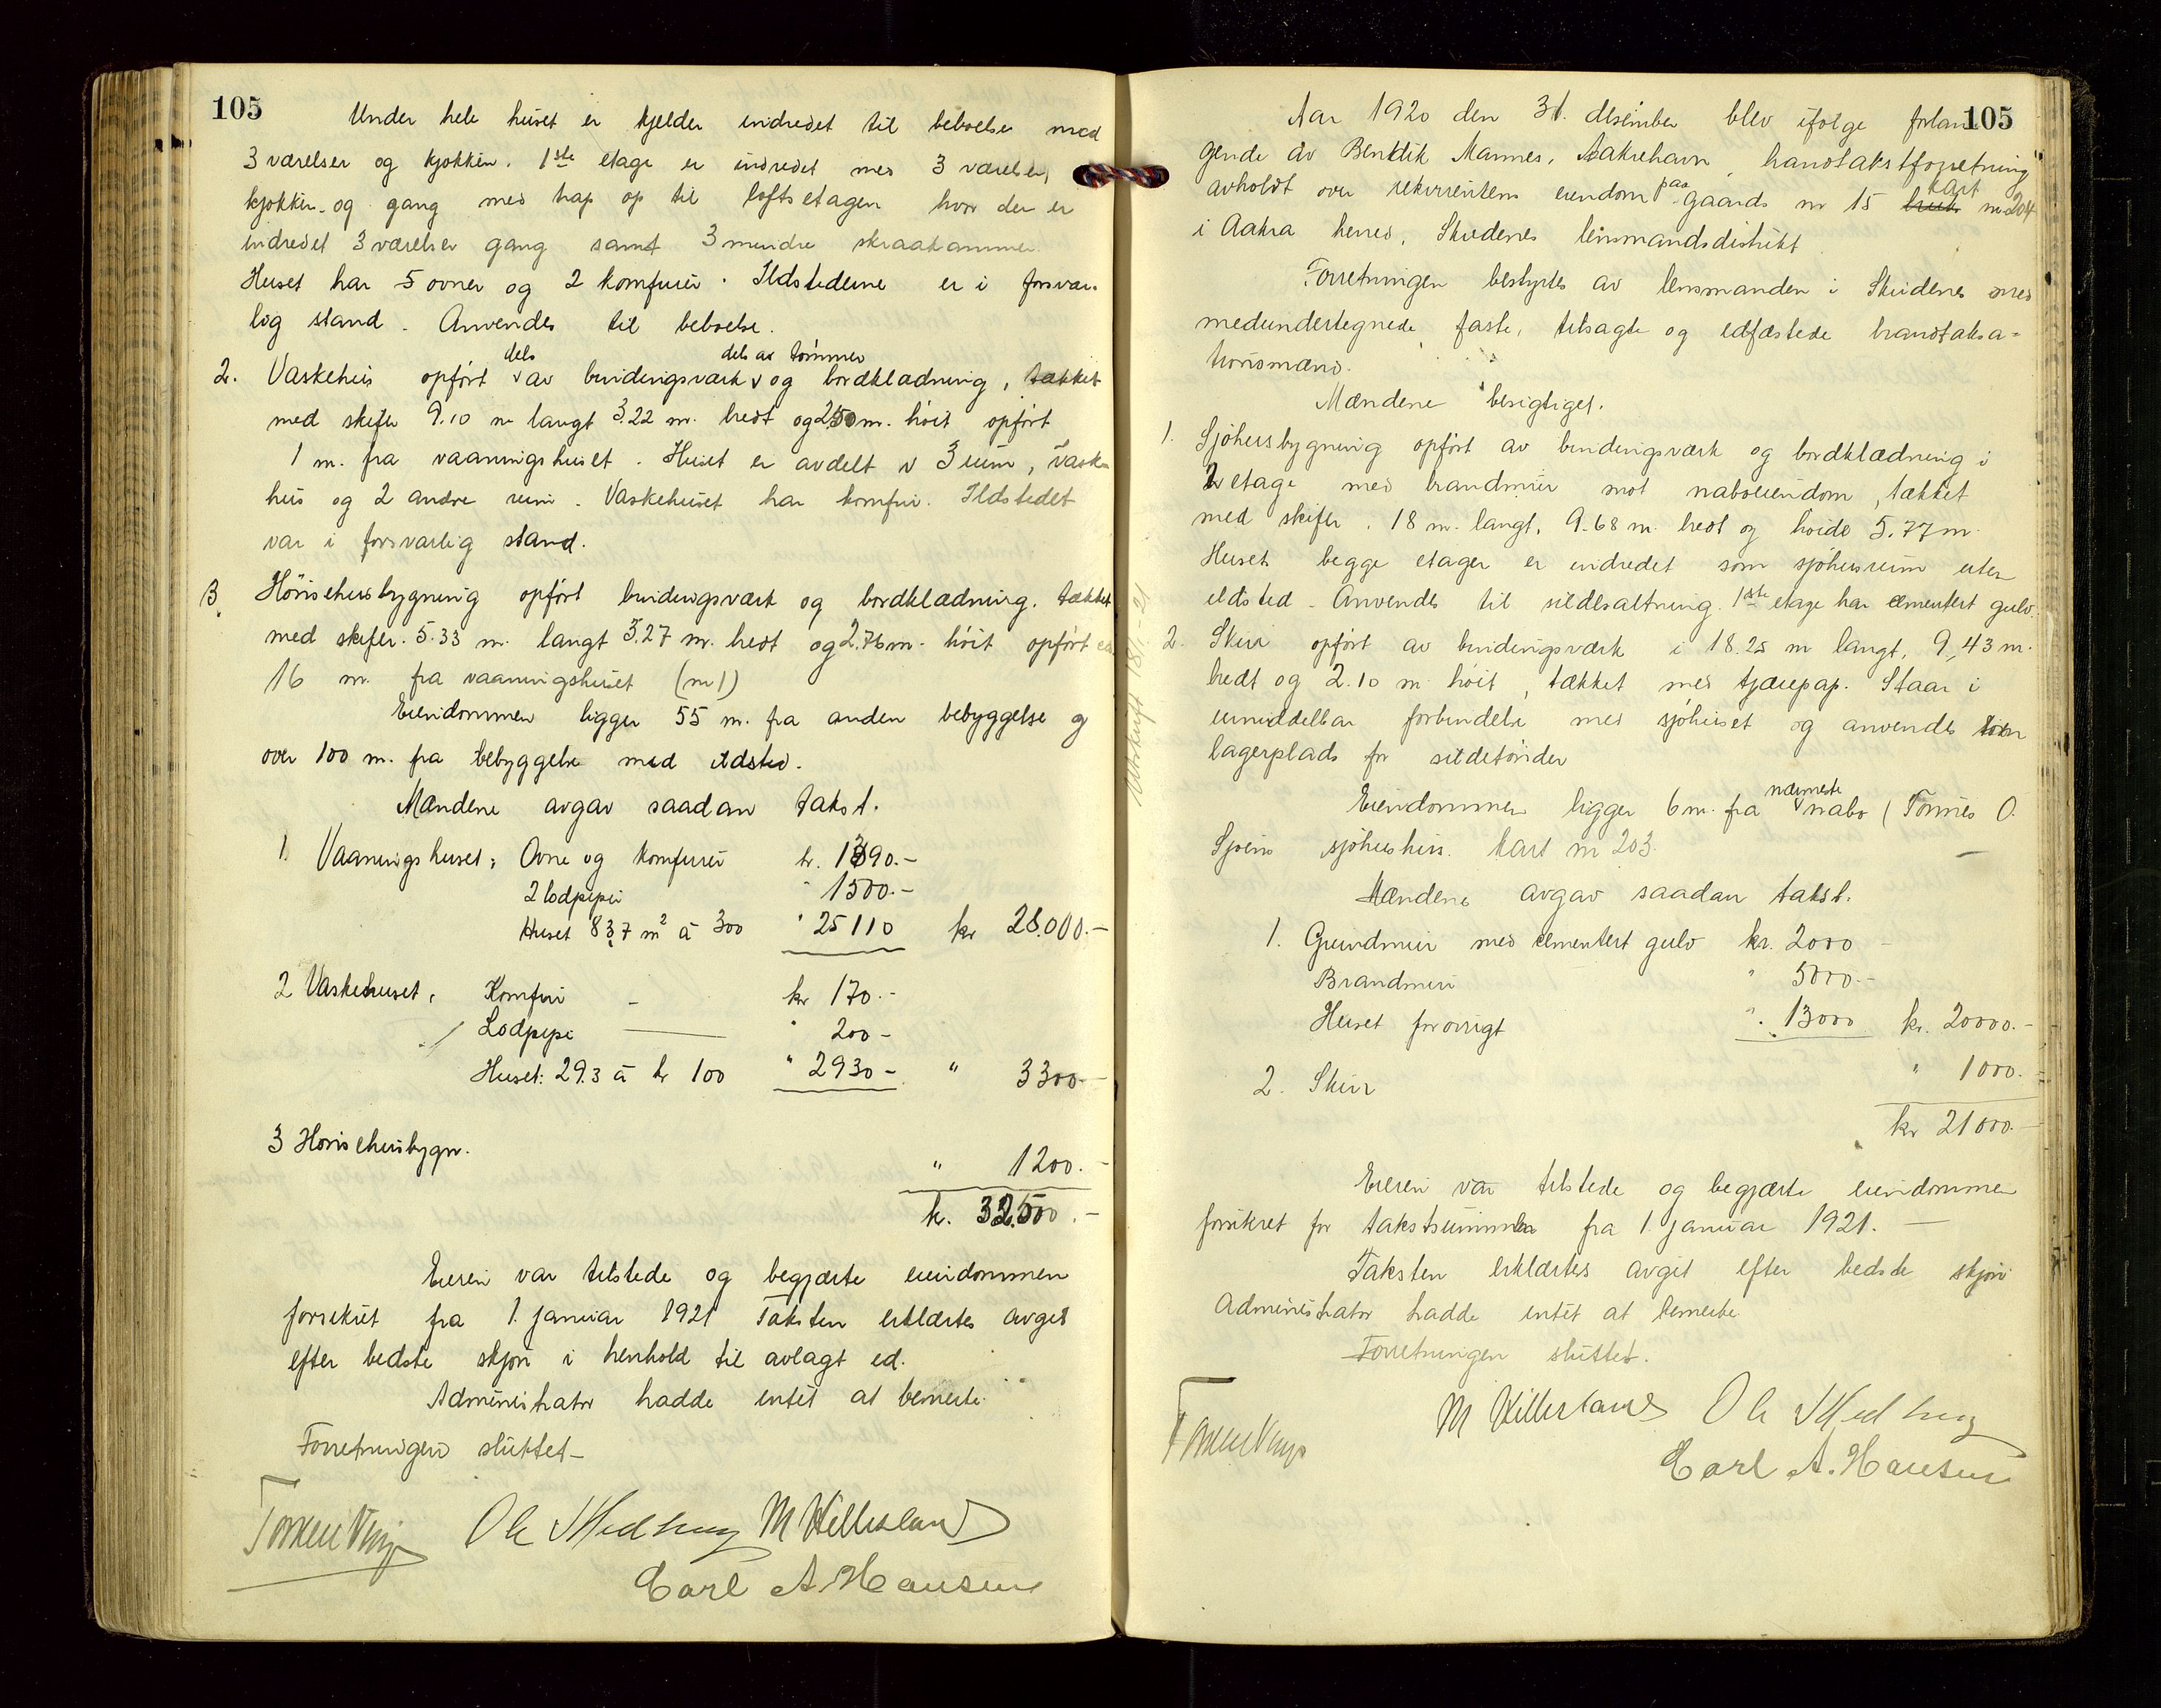 105
Under hele huset er kjelder indredet til beboelse med
3 værelser og kjøkken. 1ste etage er indredet med 3 værelser,
kjøkken og gang med trap op til loftsetagen hvor der er
indredet 3 værelser gang samt 3 mindre skraakammer.
Huset har 5 ovner og 2 komfurer. Ildstederne er i forsvar-
lig stand. Anvendes til beboelse.
dels dels av tømmer
2. Vaskehus opført av bindingsværk og bordklædning, tækket
med skifer 9.10 m langt 3.22 m. bredt og 2.50 m. høit opført
1 m. fra vaaningshuset. Huset er avdelt i 3 rum, vaske-
hus og 2 andre rum. Vaskehuset har komfur. Ildstedet
var i forsvarlig stand.
3. Hønsehusbygning opført bindingsværk og bordklædning. tækket
med skifer. 5.33 m. langt 3.27 m. bredt og 2.76 m. høit opført ca.
16 m. fra vaaningshuset (nr 1)
Eiendommen ligger 55 m. fra anden bebyggelse og
over 100 m. fra bebyggelse med ildsted.
Mændene avgav saadan takst.
1. Vaaningshuset; Ovne og komfurer kr. 1390.-
2 lodpiper " 1500.-
Huset 83,7 m2 à 300 " 25110 kr 28.000.-
2 Vaskehuset, Komfur - kr 170.-
Lodpipe " 200 -
Huset: 29.3 à kr 100 " 2930 - " 3300.-
3 Hønsehusbygn.
" 1200.-
kr. 32.500.-
Eieren var tilstede og begjærte eiendommen
forsikret fra 1. januar 1921 Taksten erklærtes avgit
efter bedste skjøn i henhold til avlagt ed.
Administrator hadde intet at bemerke.
Forretningen sluttet -
Ole Medhaug M Hillesland
Carl A. Hansen
105
Aar 1920 den 31. desember blev ifølge forlan-
gende av Bendik Mannes, Aakrehavn, brandtakstforretning
avholdt over rekvirentens eiendom paa gaards nr 15 bruk kart nr 204
i Aakra herred, Skudenes lensmandsdistrikt.
Forretningen bestyrtes av lensmanden i Skudenes med
medundertegnede, faste, tilsagte og edfæstede brandtaksa-
tionsmænd.
Mændene besigtiget.
1. Sjøhusbygning opført av bindingsværk og bordklædning i
2 etage med brandmur mot naboeiendom, tækket
med skifer. 18 m. langt, 9.68 m. bredt og høide 5.77 m.
Husets begge etager er indredet som sjøhusrum uten
ildsted. Anvendes til sildesaltning. 1ste etage har cementert gulv.
2. Skur opført av bindingsværk i 18.25 m langt, 9,43 m.
bredt og 2.10 m høit, tækket med tjærepap. Staar i
umiddelbar forbindelse med sjøhuset og anvendes som
lagerplads for sildetønder
Avskrift 18/1-21
Eiendommen ligger 6 m. fra nærmeste nabo (Tønnes O.
Sjøens sjøhushus. kart nr 203.
Mændene avgav saadan takst.
1. Grundmur med cementert gulv kr. 2000 -
Brandmur " 5000.-
Huset forøvrigt " 13000 kr. 20000.-
2. Skur " 1000.-
kr 21000.-
Eieren var tilstede og begjærte eiendommen
forsikret for takstsummen fra 1. januar 1921. -
Taksten erklærtes avgit efter bedste skjøn
Administrator hadde intet at bemerke
Forretningen sluttet.
M Hillesland Ole Medhaug
Carl A. Hansen